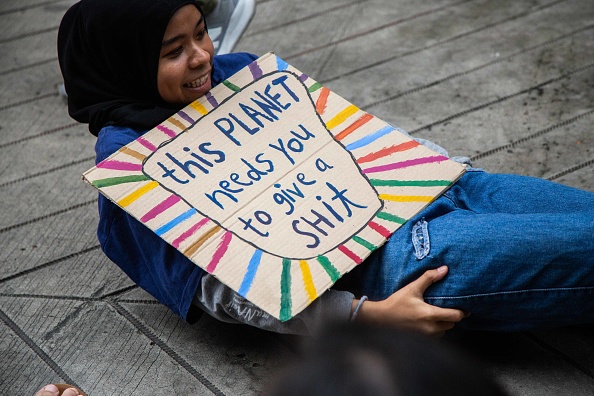 this PLANET
needs you
to give a
Shit